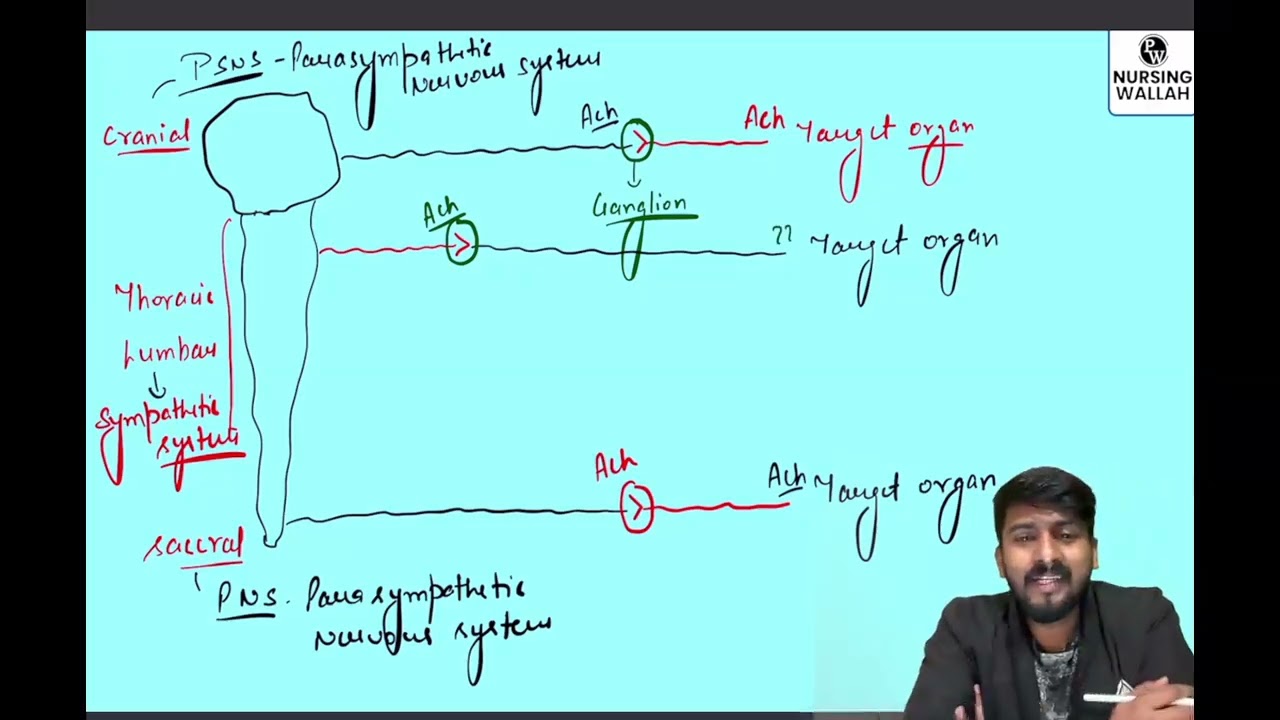 PSNS - Parasympathetic
nervous system
PW
NURSING
WALLAH
Cranial
Ach
Ach Target organ
Ganglion
Ach
?? Target organ
Thoracic
Lumbar
Sympathetic
system
Ach
Ach Target organ
Saccral
PNS. Parasympathetic
nervous system